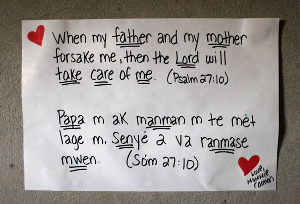 When my father and my mother
forsake me, then the Lord will
take care of me. (Psalm 27:10)
Papa m ak manman m te mèt
lage m. Senyè a va ranmase
mwen. (Sòm 27:10)
Love,